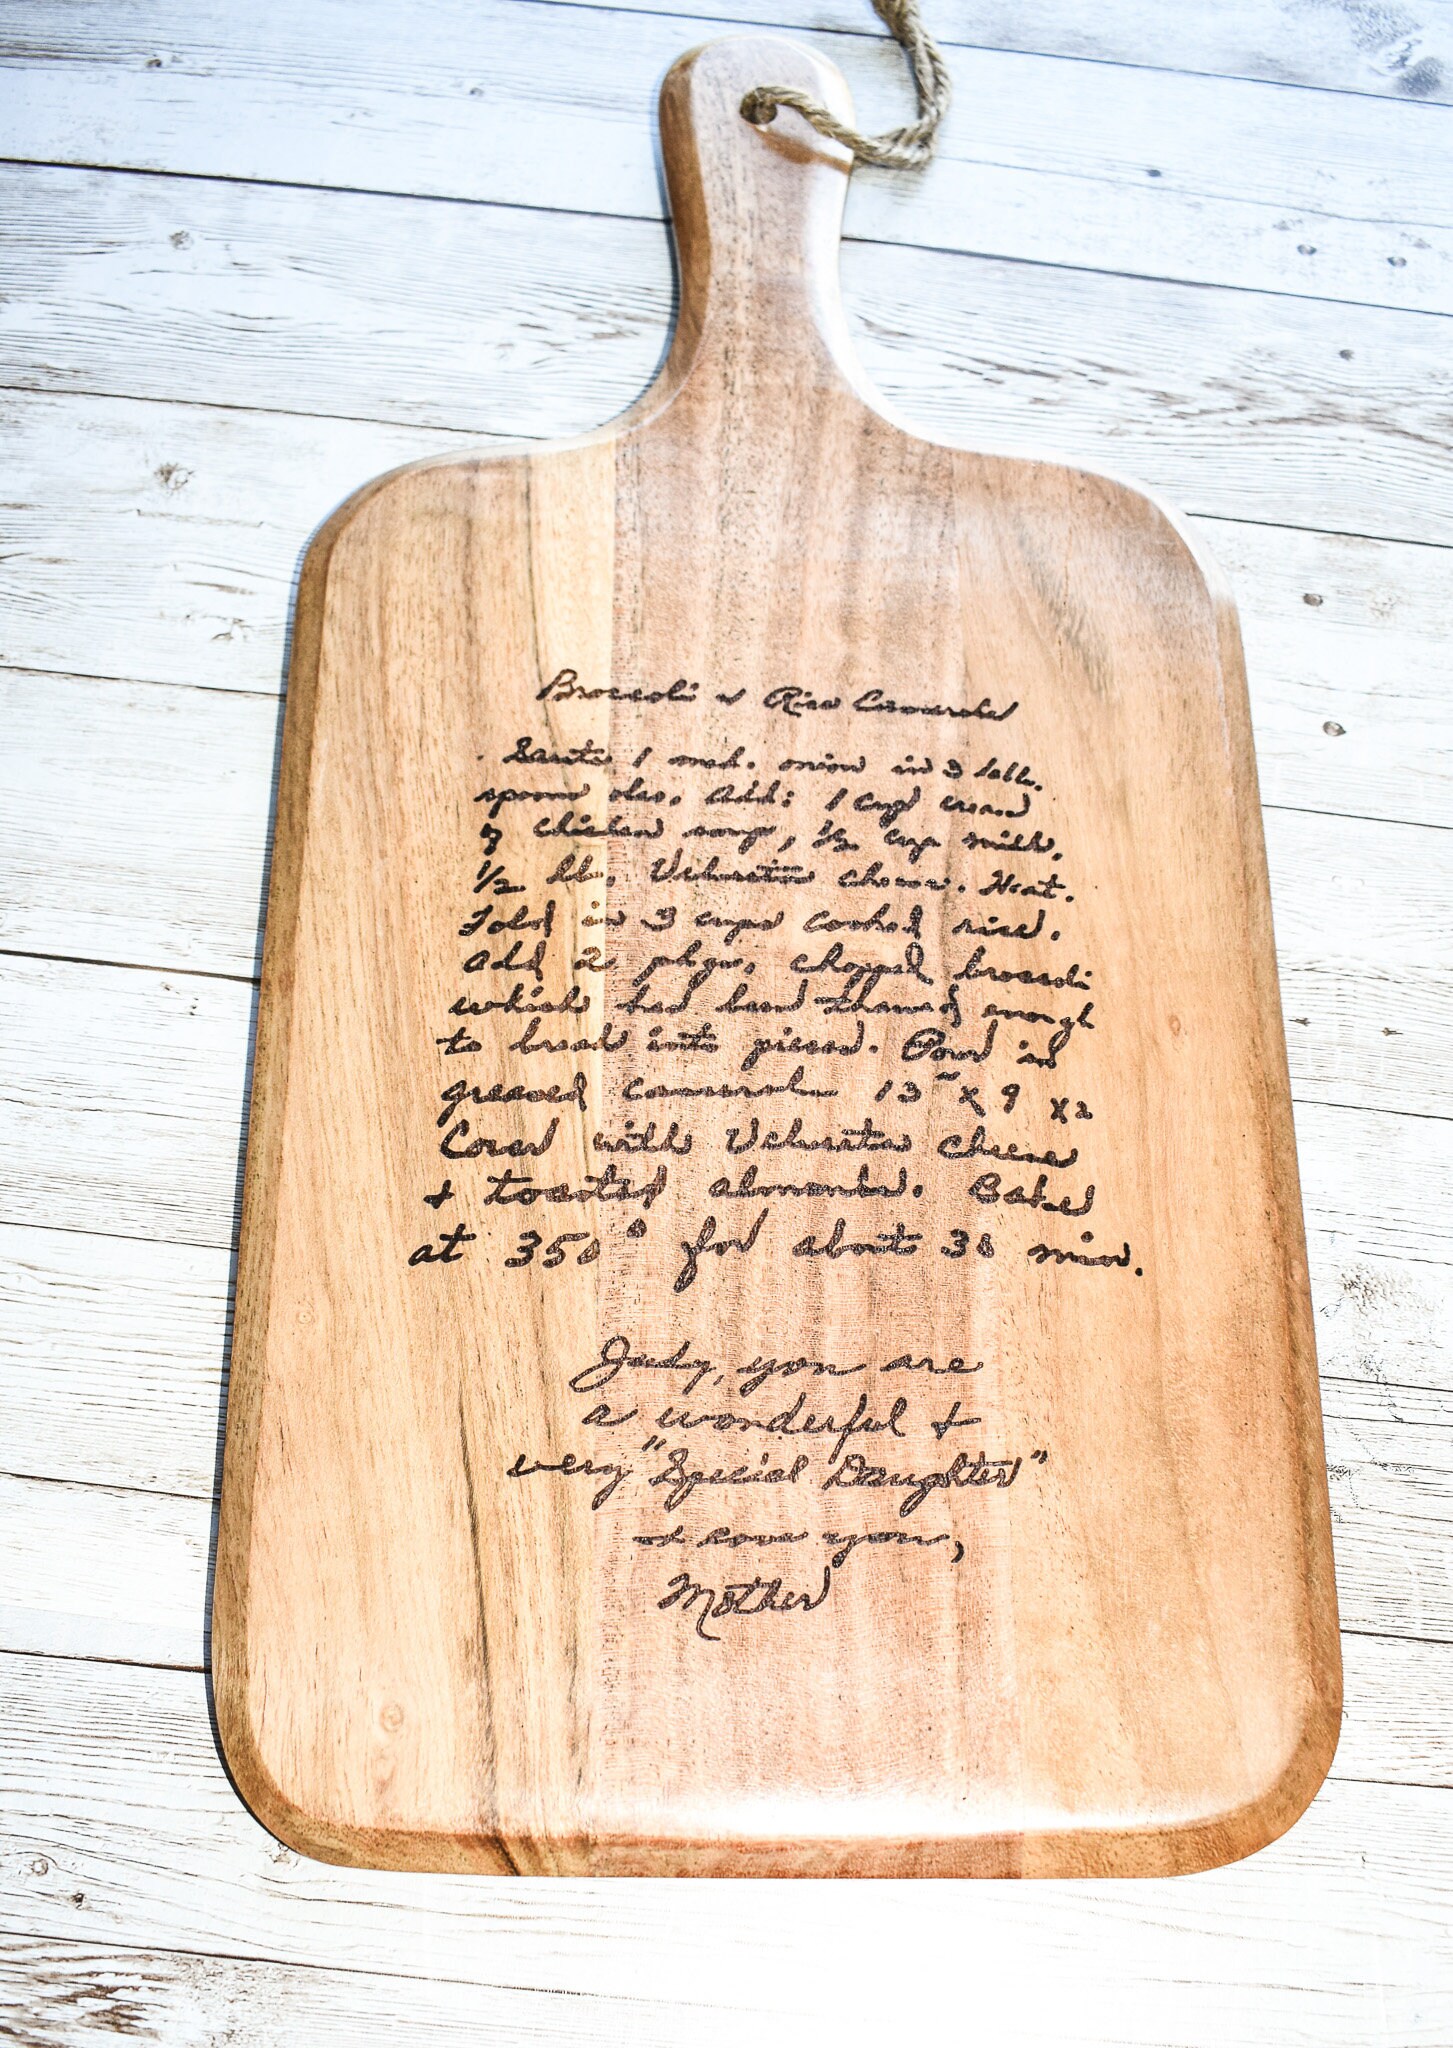 Broccoli & Rice Casserole
Sauté 1 med. onion in 3 table
spoons oleo. Add: 1 cup cream
of chicken soup, ½ cup milk,
1/2 lb. Velveeta cheese. Heat.
Fold in 3 cups cooked rice.
Add 2 pkgs. chopped broccoli
which has been thawed enough
to break into pieces. Pour in
greased casserole 13" x 9 x 2
Cover with Velveeta cheese
& toasted almonds. Bake
at 350° for about 30 min.
Judy, you are
a wonderful &
very "Special Daughter"
I love you,
Mother